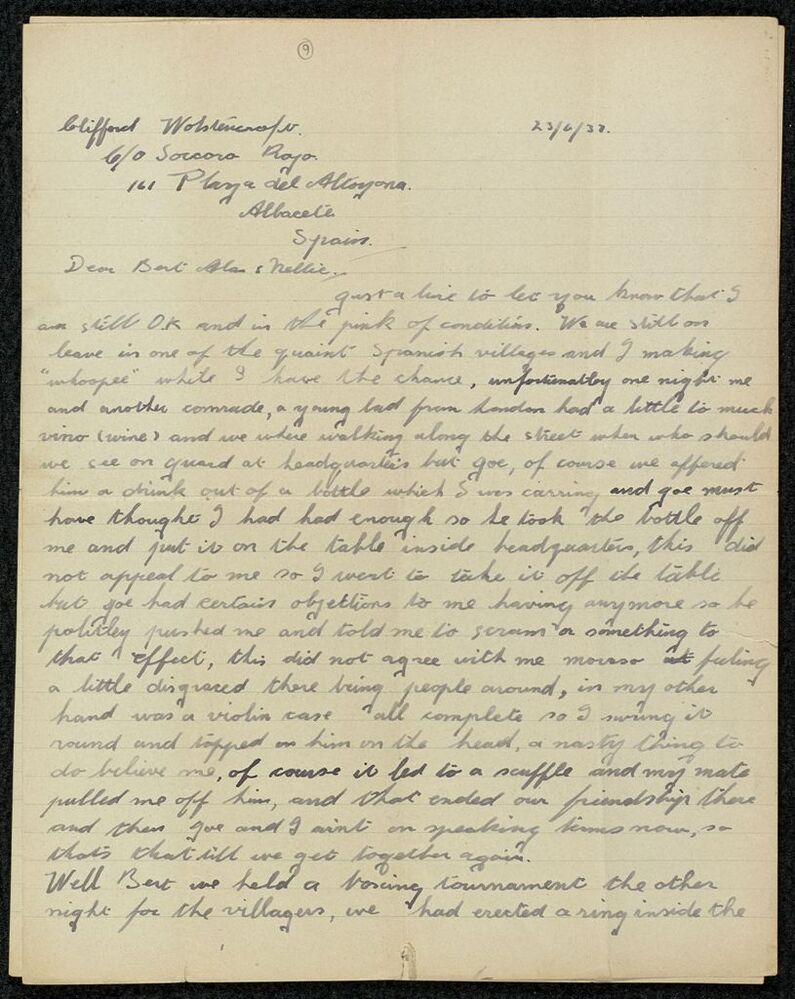 9
Clifford Wolstencroft. 23/6/37.
C/O Soccoro Rojo.
161 Plaza del Altozona.
Albacete
Spain.
Dear Bert Alan & Nellie,
Just a line to let you know that I
am still O.K and in the pink of condition. We are still on
leave in one of the quaint Spanish villages and I making
"whoopee" while I have the chance, unfortunatley one night me
and another comrade, a young lad from London had a little to much
vino (wine) and we where walking along the street when who should
we see on guard at headquarters but Joe, of course we offered
him a drink out of a bottle which I was carring and Joe must
have thought I had had enough so he took the bottle off
me and put it on the table inside headquarters, this did
not appeal to me so I went to take it off the table
but Joe had certain objections to me having anymore so he
politley pushed me and told me to scram or something to
that effect, this did not agree with me moreso feeling
a little disgraced there being people around, in my other
hand was a violin case all complete so I swung it
round and topped on him on the head, a nasty thing to
do believe me, of course it led to a scuffle and my mate
pulled me off him, and that ended our friendship there
and then Joe and I aint on speaking terms now, so
thats that till we get together again.
Well Bert we held a boxing tournament the other
night for the villagers, we had erected a ring inside the